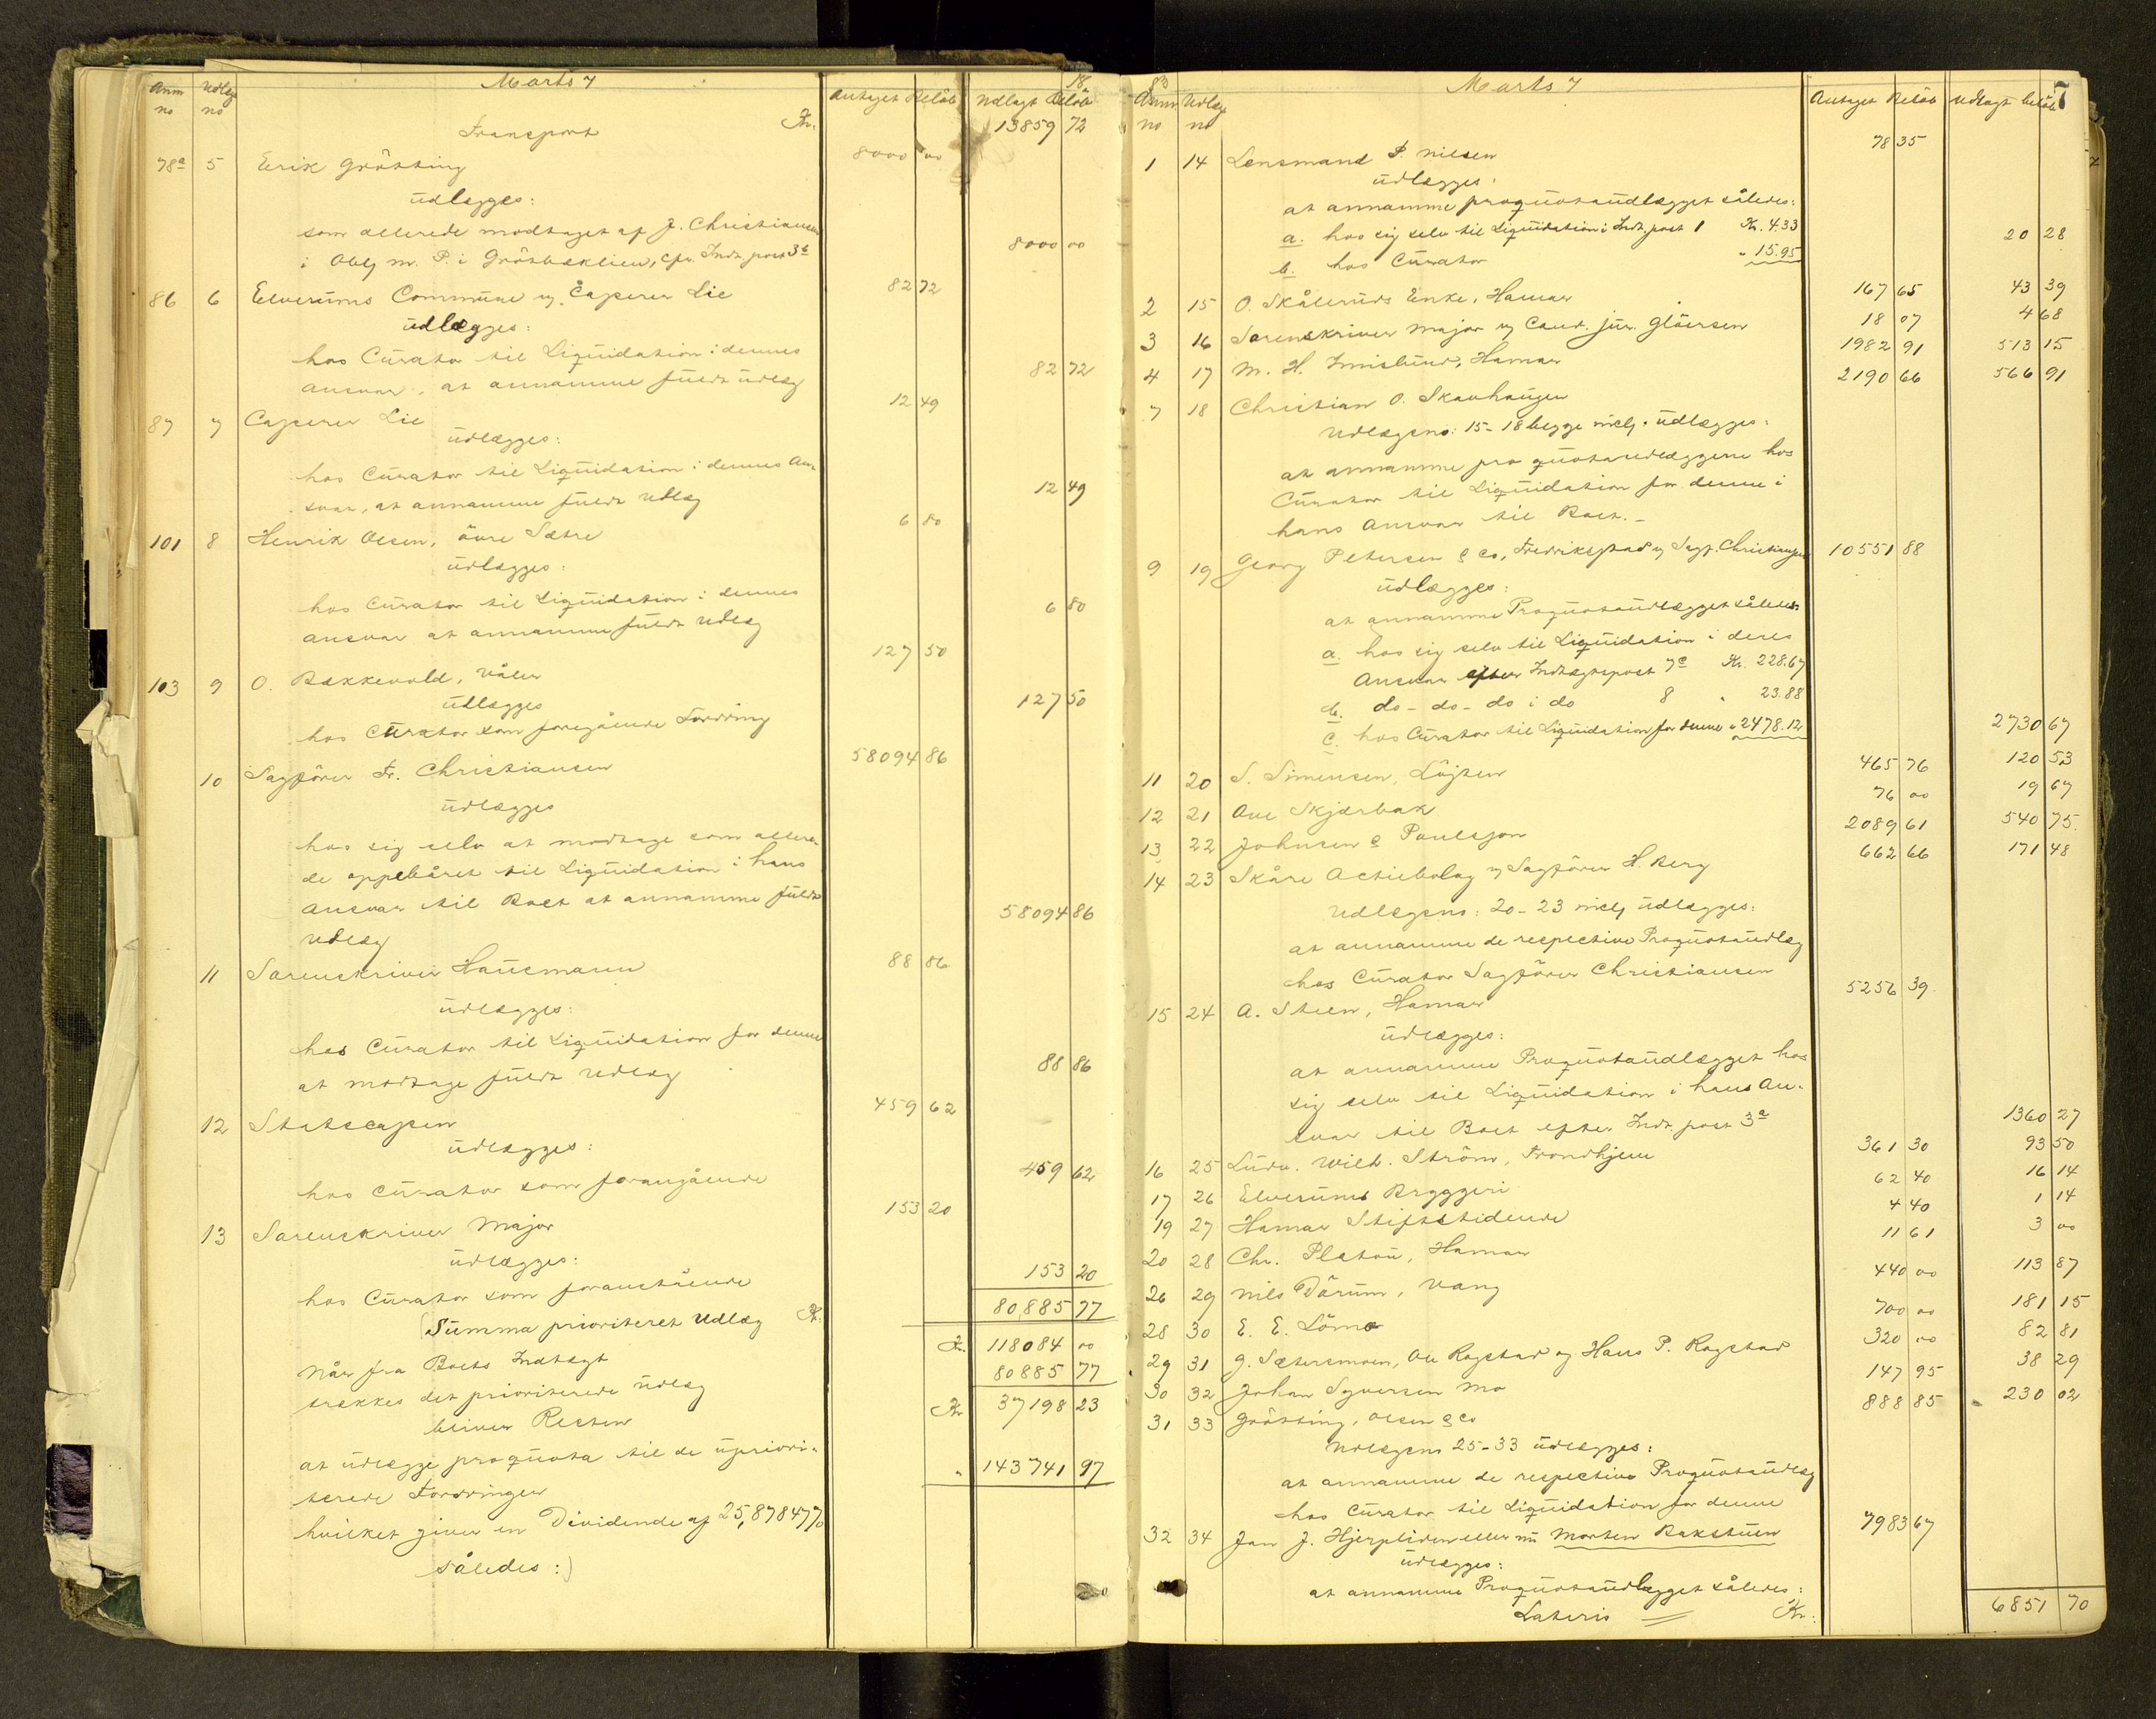 Marts 7 18
Anm no Udlæg no Antaget Beløb Udlagt Beløb
Transport Kr. 13859 72
78a 5 Eerik Grötting 8000 00
üdlægges:
som allerede modtaget af J. Christiansen
i Obl. m. P. i Grötbæklien, cfr. Indt. post 3b 8000 00
86 6 Elverums Commüne v. Casserer Lie 82 72
üdlægges:
hos Cürator til Liqüidation i dennes
Ansvar, at annamme füldt üdlæg 82 72
87 7 Casserer Lie 12 49
üdlægges:
hos Cürator til Liqüidation i dennes An-
svar, at annamme füldt Udlæg 12 49
101 8 Henrik Olsen, övre Sætre 6 80
üdlægges:
hos Cürator til Liqüidation i dennes
Ansvar at annamme füldt Udlæg 6 80
103 9 O. Bakkevold, Våler 127 50
üdlægges
hos Cürator som foregående Fordring 127 50
10 Sagförer Fr. Christiansen 58094 86
üdlægges
hos sig selv at modtage som allere-
de oppebåret til Liqüidation i hans
Ansvar til Boet at annamme füldt
Udlæg 58094 86
11 Sorenskriver Haüsmann 88 86
üdlægges:
hos Cürator til Liqüidation for denne
at modtage füldt Udlæg 88 86
12 Statscassen 459 62
üdlægges:
hos Cürator som forangående 459 62
13 Sorenskriver Major 153 20
üdlægges:
hos Cürator som foranstående 153 20
Sümma prioriteret Udlæg Kr. 80,885 77
Når fra Boets Indtægt Kr. 118084 00
trækkes det prioriterede üdlæg 80885 77
bliver Resten Kr. 37198 23
at üdlægge pro qüota til de üpriori-
terede Fordringer " 143741 97
hvilket giver en Dividende af 25,87847%
således:)
83 Marts 7 7
Anm no Udlæg no Antaget Beløb Udlagt beløb
1 14 Lensmand P. Nilsen 78 35
üdlægges:
at annamme proqüotaüdlægget således:
a. hos sig selv til Liqüidation i Indt. post 1 Kr. 4.33
b. hos Cürator " 15.95 20 28
2 15 O. Skålerüds Enke, Hamar 167 65 43 39
3 16 Sorenskriver Major v. Cand. jür. Gløersen 18 07 4 68
4 17 M. H. Innislünd, Hamar 1982 91 513 15
7 18 Christian O. Skavhaügen 2190 66 566 91
Udlægsno: 15-18 begge incl. üdlægges:
at annamme pro qüotaudlæggene hos
Cürator til Liqüidation for denne i
hans Ansvar til Boet.-
9 19 Georg Petersen & Co, Fredrikstad v. Sagf. Christiansen 10551 88
üdlægges:
at annamme Proqüotaüdlægget således:
a. hos sig selv til Liqüidation i deres
Ansvar efter Indtægtspost 7c Kr. 228.67
b. do - do - do i do 8 " 23.88
c. hos Cürator til Liqüidation for denne " 2478.12 2730 67
11 20 S. Simensen, Löjten 465 76 120 53
12 21 Ove Skjærbæk 76 00 19 67
13 22 Johnsen & Paulsson 2089 61 540 75
14 23 Skåre Actiebolag v Sagförer H. Berg 662 66 171 48
Udlægsno: 20-23 incl. üdlægges:
at annamme de respective Proqüotaüdlæg
hos Cürator Sagförer Christiansen
15 24 A. Steen, Hamar 5256 39
üdlægges:
at annamme Proqüotaüdlægget hos
sig selv til Liqüidation i hans An-
svar til Boet efter Indt. post 3a 1360 27
16 25 Lüdv. Wilh. Ström, Trondhjem 361 30 93 50
17 26 Elverüms Bryggeri 62 40 16 14
19 27 Hamar Stiftstidende 4 40 1 14
20 28 Chr. Platoü, Hamar 11 61 3 00
26 29 Nils Dörüm, Vang 440 00 113 87
28 30 E. E. Lömo 700 00 181 15
29 31 G. Sætersmoen, Ole Rogstad og Hans P. Rogstad 320 00 82 81
30 32 Johan Syversen Mo 147 95 38 29
31 33 Grötting, Olsen & Co 888 85 230 02
Udlægsno 25-33 üdlægges:
at annamme de respective Proqüotaüdlæg
hos Cürator til Liqüidation for denne
32 34 Jan J. Hjerpliden eller nü Morten Bakstüen 7983 67
üdlægges:
at annamme Proqüotaüdlægget således:
Lateris Kr. 6851 70